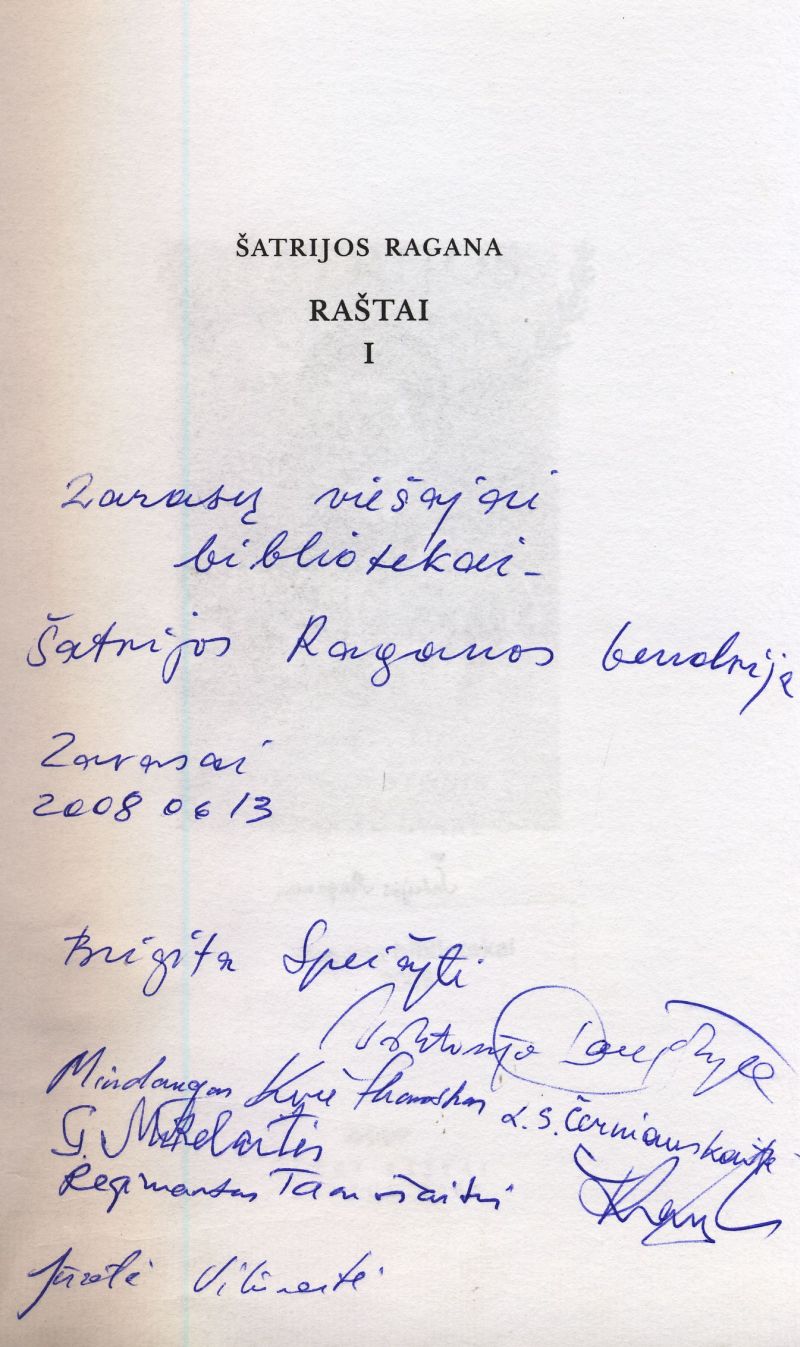 ŠATRIJOS RAGANA
RAŠTAI
I
Zarasų viešajai
bibliotekai –
Šatrijos Raganos bendrija
Zarasai
2008 06 13
Brigita Speičytė
Viktorija Daujotytė
Mindaugas Kvietkauskas
L. S. Černiauskaitė
G. Mikelaitis
Regimantas Tamošaitis
Jūratė